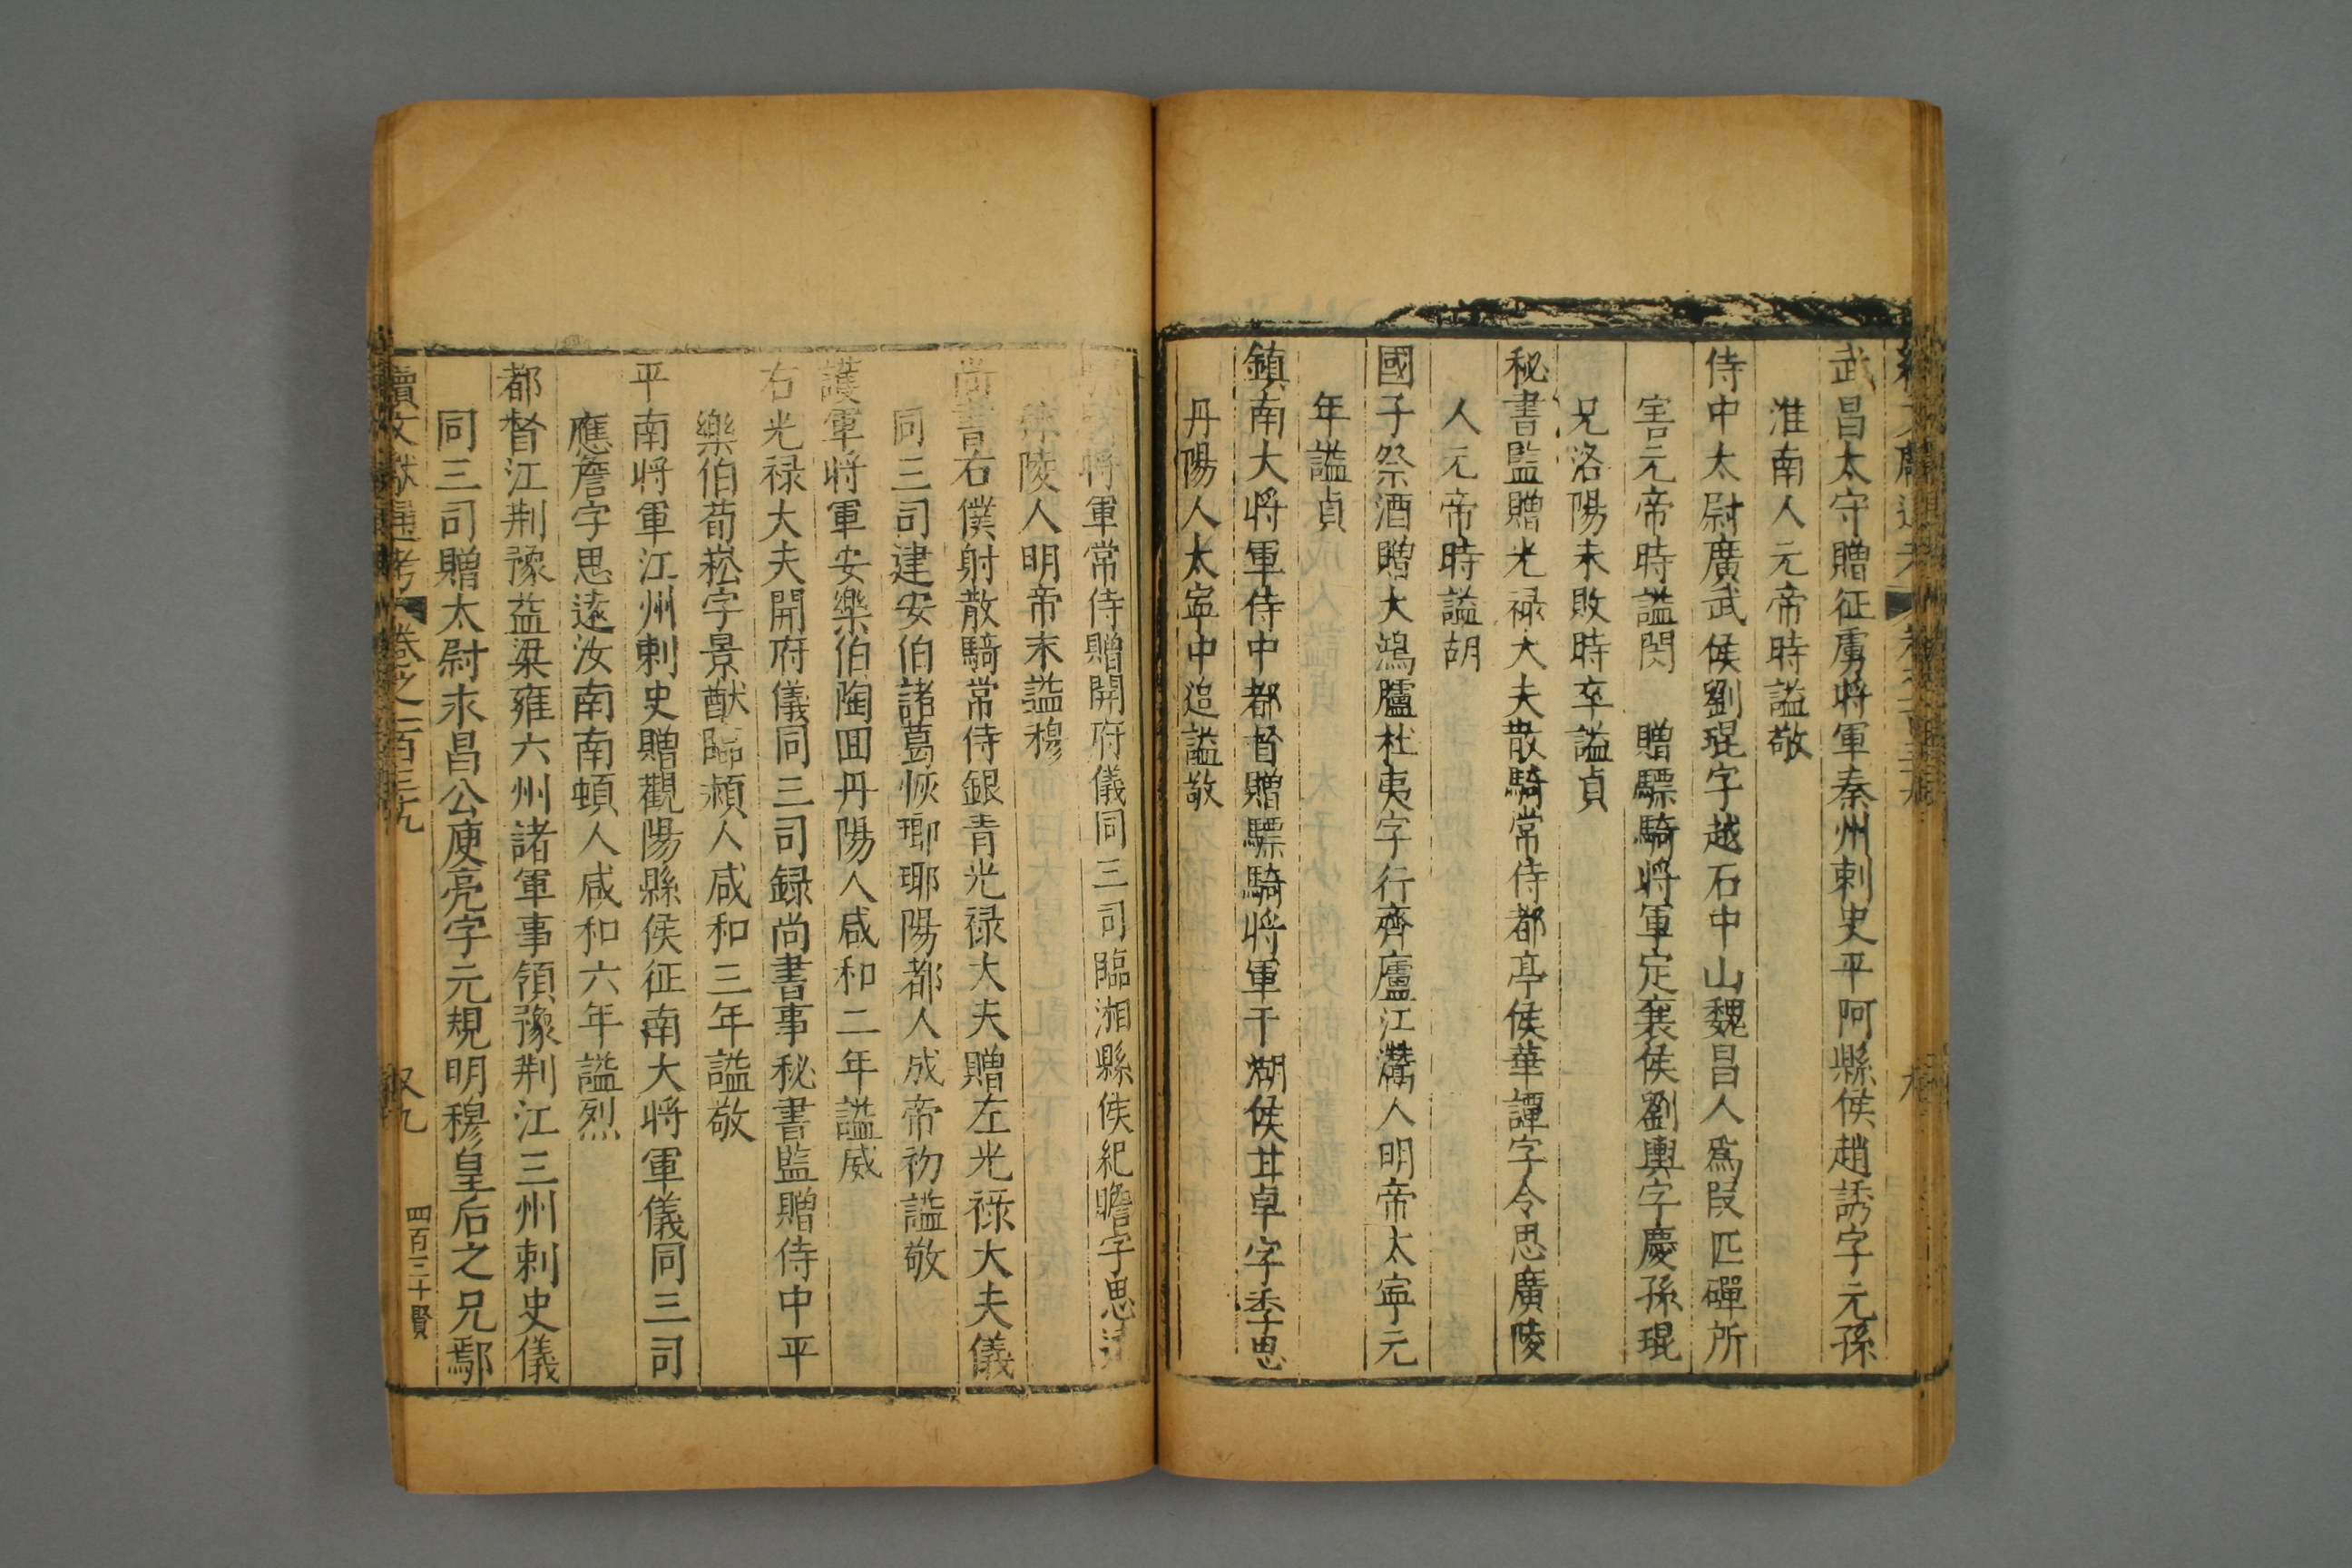 武昌太守贈征虜將軍秦州刺史平阿縣侯趙誘字元孫
淮南人元帝時謚敬
侍中太尉廣武侯劉琨字越石中山魏昌人爲段匹磾所
害元帝時謚閔　贈驃騎將軍定襄侯劉輿字慶孫琨
兄洛陽未敗時卒謚貞
秘書監贈光禄大夫散騎常侍都亭侯華譚字令思廣陵
人元帝時謚胡
國子祭酒贈大鴻臚杜夷字行齊廬江灊人明帝太寧元
年謚貞
鎮南大將軍侍中都督贈驃騎將軍于湖侯甘卓字季思
丹陽人太寧中追謚敬
將軍常侍贈開府儀同三司臨湘縣侯紀瞻字思遠
陵人明帝末謚穆
尚書右僕射散騎常侍銀青光禄大夫贈左光禄大夫儀
同三司建安伯諸葛恢瑯琊陽都人成帝初謚敬
護軍將軍安樂伯陶回丹陽人咸和二年謚威
右光禄大夫開府儀同三司録尚書事秘書監贈侍中平
樂伯荀崧字景猷臨潁人咸和三年謚敬
平南將軍江州刺史贈觀陽縣侯征南大將軍儀同三司
應詹字思遠汝南南頓人咸和六年謚烈
都督江荆豫益梁雍六州諸軍事領豫荆江三州刺史儀
同三司贈太尉永昌公庾亮字元規明穆皇后之兄鄢
續文獻通考　卷之一百三九　又九　四百三十賢